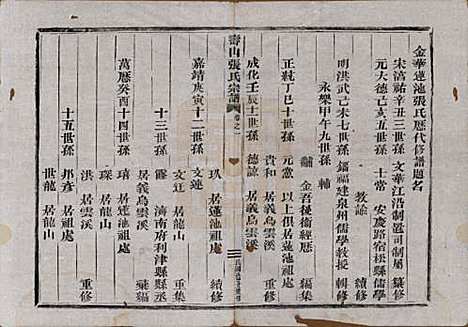 金華蓮池張氏歷代修譜題名
宋淳祐辛丑三世孫 文華 江浙制置司制屬 纂修
元大德己亥五世孫 士常 安慶路宿松縣儒學教諭 續修
明洪武己未七世孫 鎦 福建泉州儒學教授 輯修
永樂甲午九世孫 輔
黼 金吾後衛經歷
正統丁巳十世孫 元憲 以上俱居蓮池祖處
貴和 居義烏雲溪
成化壬辰十一世孫 德諒 居義烏雲溪
壽山張氏宗譜 卷之一
玖 居蓮池祖處 續修
嘉靖庚寅十二世孫 文連
文廷 居龍山 重集
十三世孫 霞 濟南府利津縣縣丞
居義烏雲溪 彙編
萬曆癸酉十四世孫 琦 居蓮池祖處
琛 居龍山
洪 居雲溪 重修
十五世孫 邦彥 居蓮池祖處
世龍 居龍山